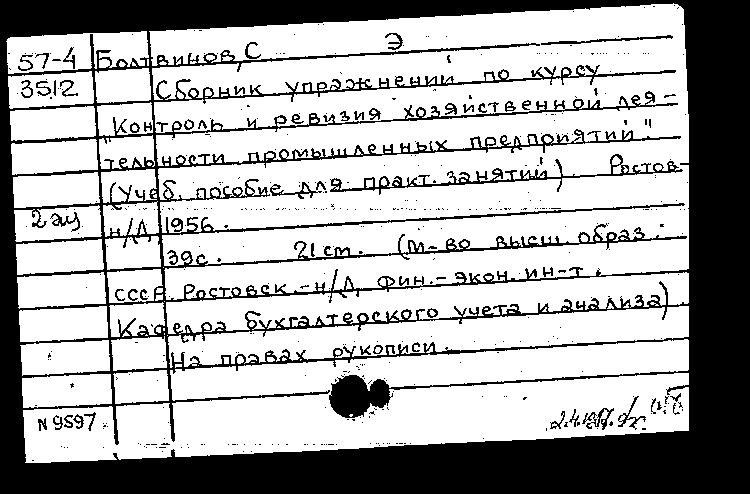 57-4 Болтвинов, С Э
3512 Сборник упражнений по курсу
„Контроль и ревизия хозяйственной дея-
тельности промышленных предприятий".
(Учеб. пособие для практ. занятий) Ростов-
2 экз н/Д, 1956.
39с. 21 ст. (М-во высш. образ.
СССР. Ростовск.-н/Д, фин.-экон. ин-т.
Кафедра бухгалтерского учета и анализа)
На правах рукописи.
N 9597.